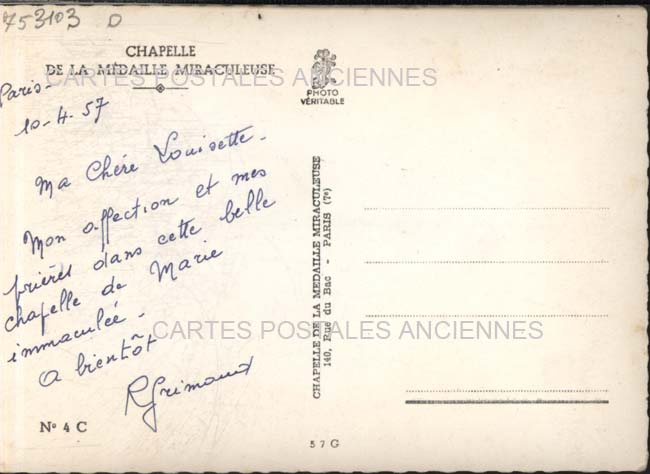 753103 D
CHAPELLE
DE LA MÉDAILLE MIRACULEUSE
CARTES POSTALES ANCIENNES
PHOTO
VÉRITABLE
Paris-
10-4-57
Ma Chére Louisette-
Mon affection et mes
prières dans cette belle
chapelle de Marie
immaculée-
A bientôt
RGrimoux
CARTES POSTALES ANCIENNES
CHAPELLE DE LA MEDAILLE MIRACULEUSE
140, Rue du Bac - PARIS (7e)
No 4 C
57G